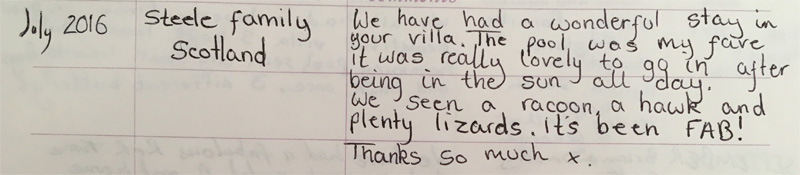 July 2016
Steele family
Scotland
We have had a wonderful stay in
your villa. The pool was my fave
it was really lovely to go in after
being in the sun all day.
We seen a racoon, a hawk and
plenty lizards. It's been FAB!
Thanks so much x.